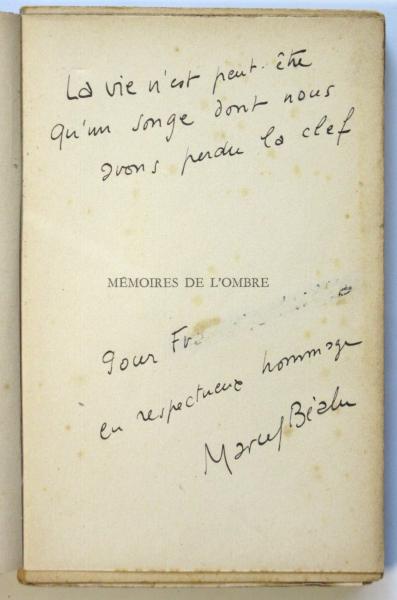 La vie n'est peut-être
qu'un songe dont nous
avons perdu la clef
MÉMOIRES DE L'OMBRE
Pour
en respectueux hommage
Marcel Béalu